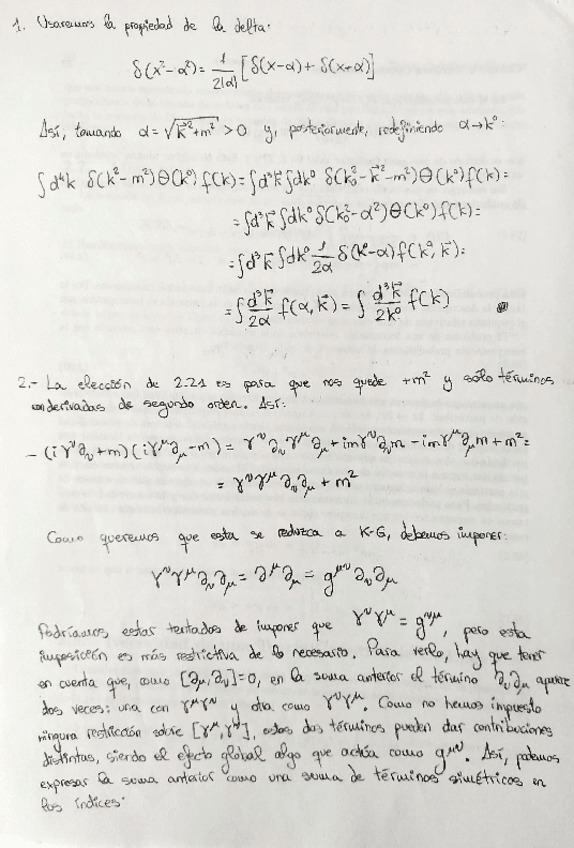 1. Usaremos la propiedad de la delta:
δ(x²-α²)= 1/2|α| [δ(x-α)+δ(x+α)]
Así, tomando α=√(k⃗²+m²) >0 y, posteriormente, redefiniendo α→k⁰:
∫d⁴k δ(k²-m²)Θ(k⁰)f(k)=∫d³k⃗∫dk⁰ δ(k₀²-k⃗²-m²)Θ(k⁰)f(k)=
=∫d³k⃗∫dk⁰δ(k₀²-α²)Θ(k⁰)f(k)=
=∫d³k⃗∫dk⁰ 1/2α δ(k⁰-α)f(k⁰,k⃗)=
=∫d³k⃗/2α f(α,k⃗)=∫d³k⃗/2k⁰ f(k)
2.- La elección de 2.21 es para que nos quede +m² y sólo términos
con derivadas de segundo orden. Así:
-(iγ^ν∂_ν+m)(iγ^μ∂_μ-m)= γ^ν∂_νγ^μ∂_μ+imγ^ν∂_νm-imγ^μ∂_μm+m²=
= γ^νγ^μ∂_ν∂_μ+m²
Como queremos que esta se reduzca a K-G, debemos imponer:
γ^νγ^μ∂_ν∂_μ=∂^μ∂_μ=g^μν∂_ν∂_μ
Podríamos estar tentados de imponer que γ^νγ^μ=g^νμ, pero esta
imposición es más restrictiva de lo necesario. Para verlo, hay que tener
en cuenta que, como [∂_μ,∂_ν]=0, en la suma anterior el término ∂_ν∂_μ aparece
dos veces: una con γ^μγ^ν y otra como γ^νγ^μ. Como no hemos impuesto
ninguna restricción sobre [γ^μ,γ^ν], estos dos términos pueden dar contribuciones
distintas, siendo el efecto global algo que actúa como g^μν. Así, podemos
expresar la suma anterior como una suma de términos simétricos en
los índices: